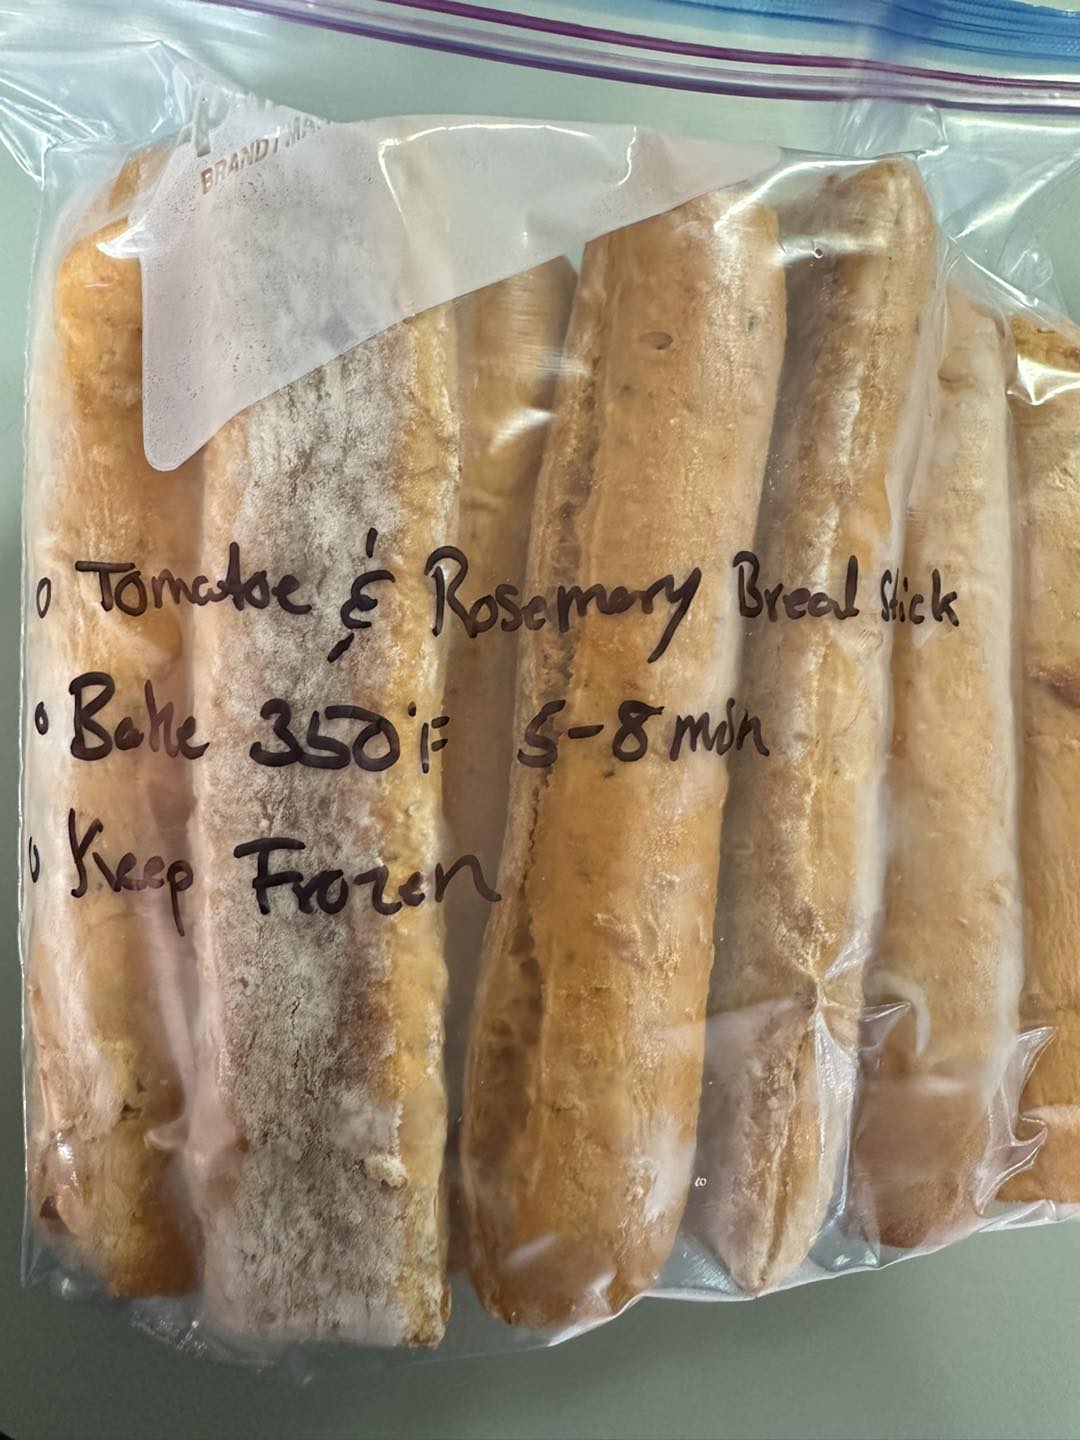 BRAND / MA
o Tomatoe & Rosemary Bread Stick
• Bake 350°F 5-8 min
o Keep Frozen